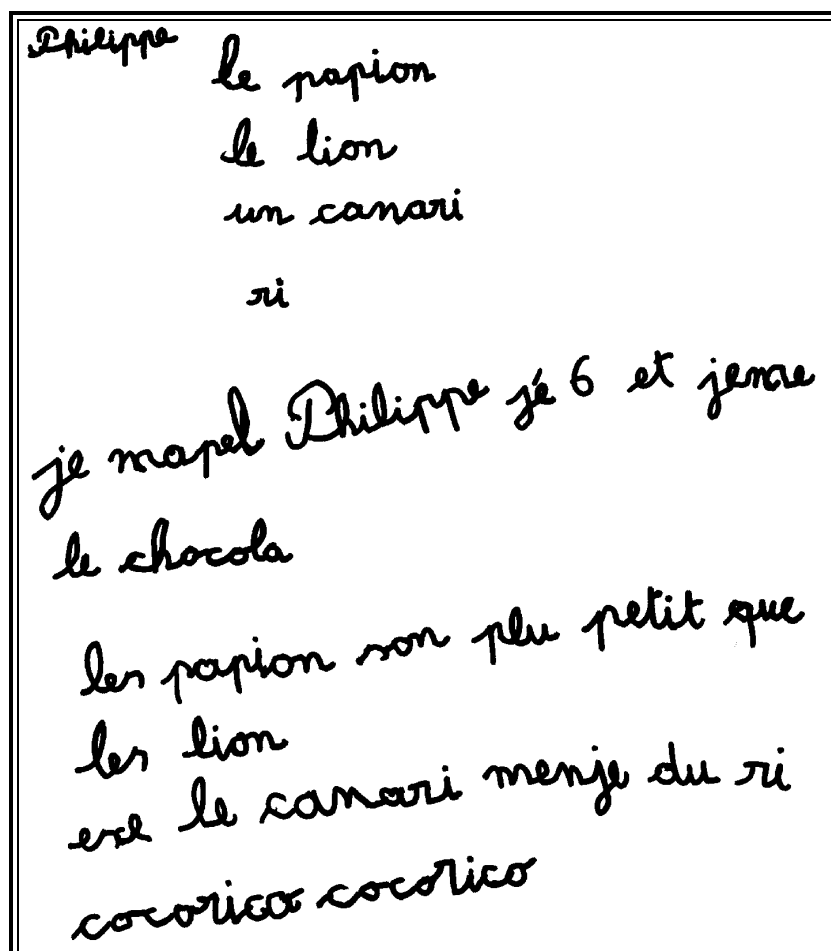 Philippe
le papion
le lion
un canari
ri
je mapel Philippe jé 6 et jeme
le chocola
les papion son plu petit que
les lion
exe le canari menje du ri
cocorico cocorico